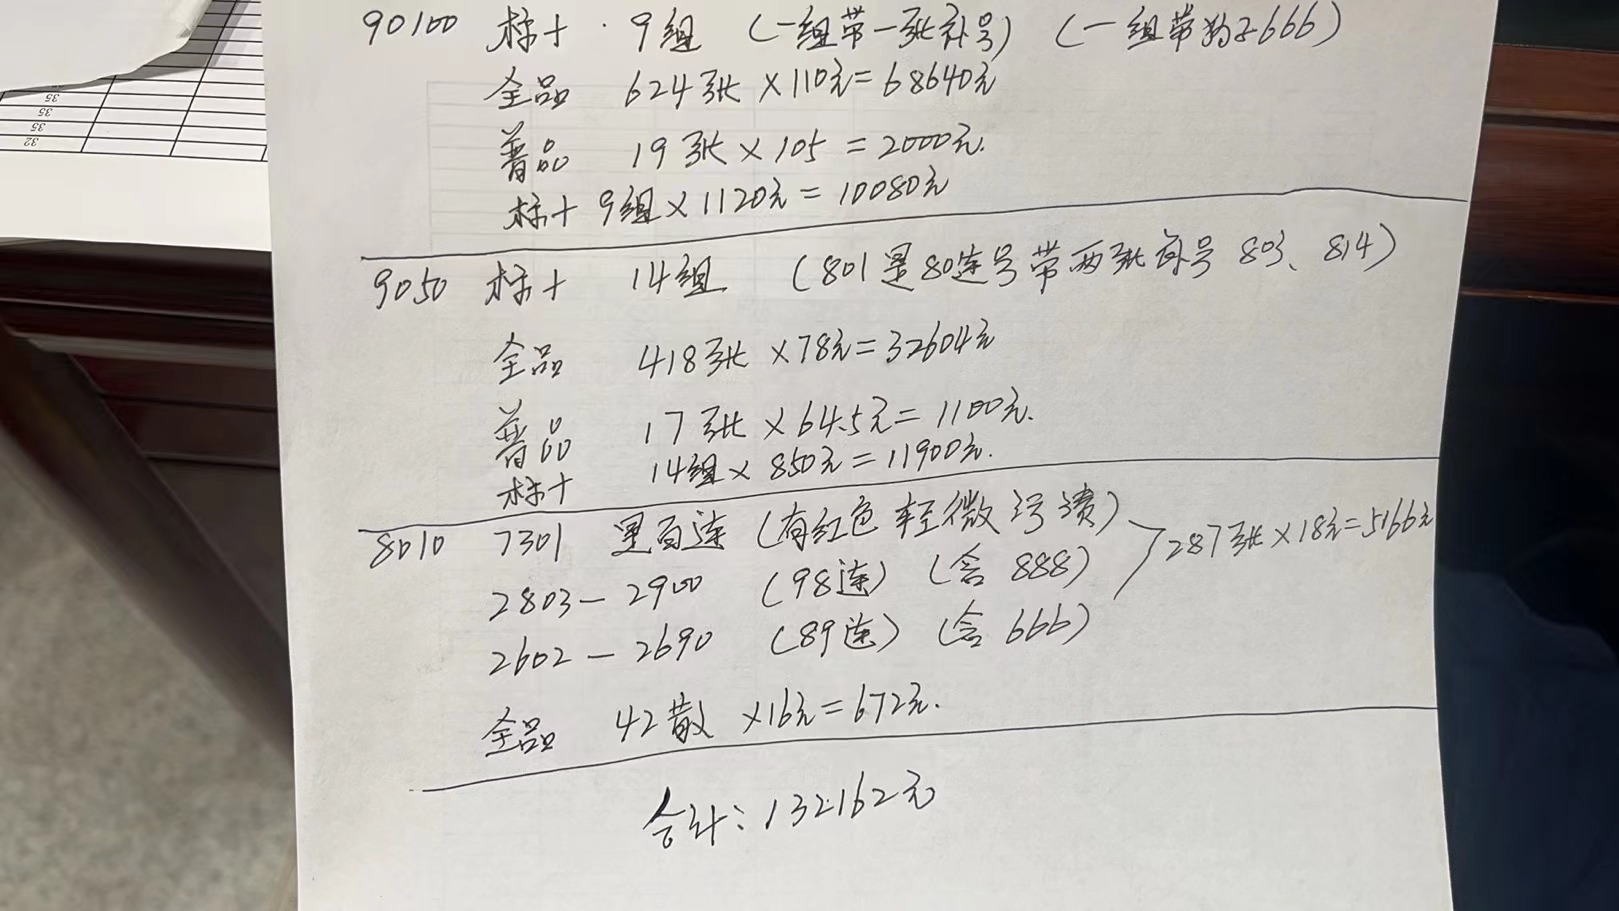 35
35
35
32
90100 标十·9组 (一组带一张补号) (一组带豹子666)
全品 624张×110元=68640元
普品 19张×105=2000元.
标十 9组×1120元=10080元
9050 标十 14组 (801是80连号带两张补号 803、814)
全品 418张×78元=32604元
普品 17张×64.5元=1100元.
标十 14组×850元=11900元.
8010 7301 是百连(有红色轻微污渍)
2803-2900 (98连) (含888) 287张×18元=5166元
2602-2690 (89连) (含666)
全品 42散×16元=672元.
合计:132162元